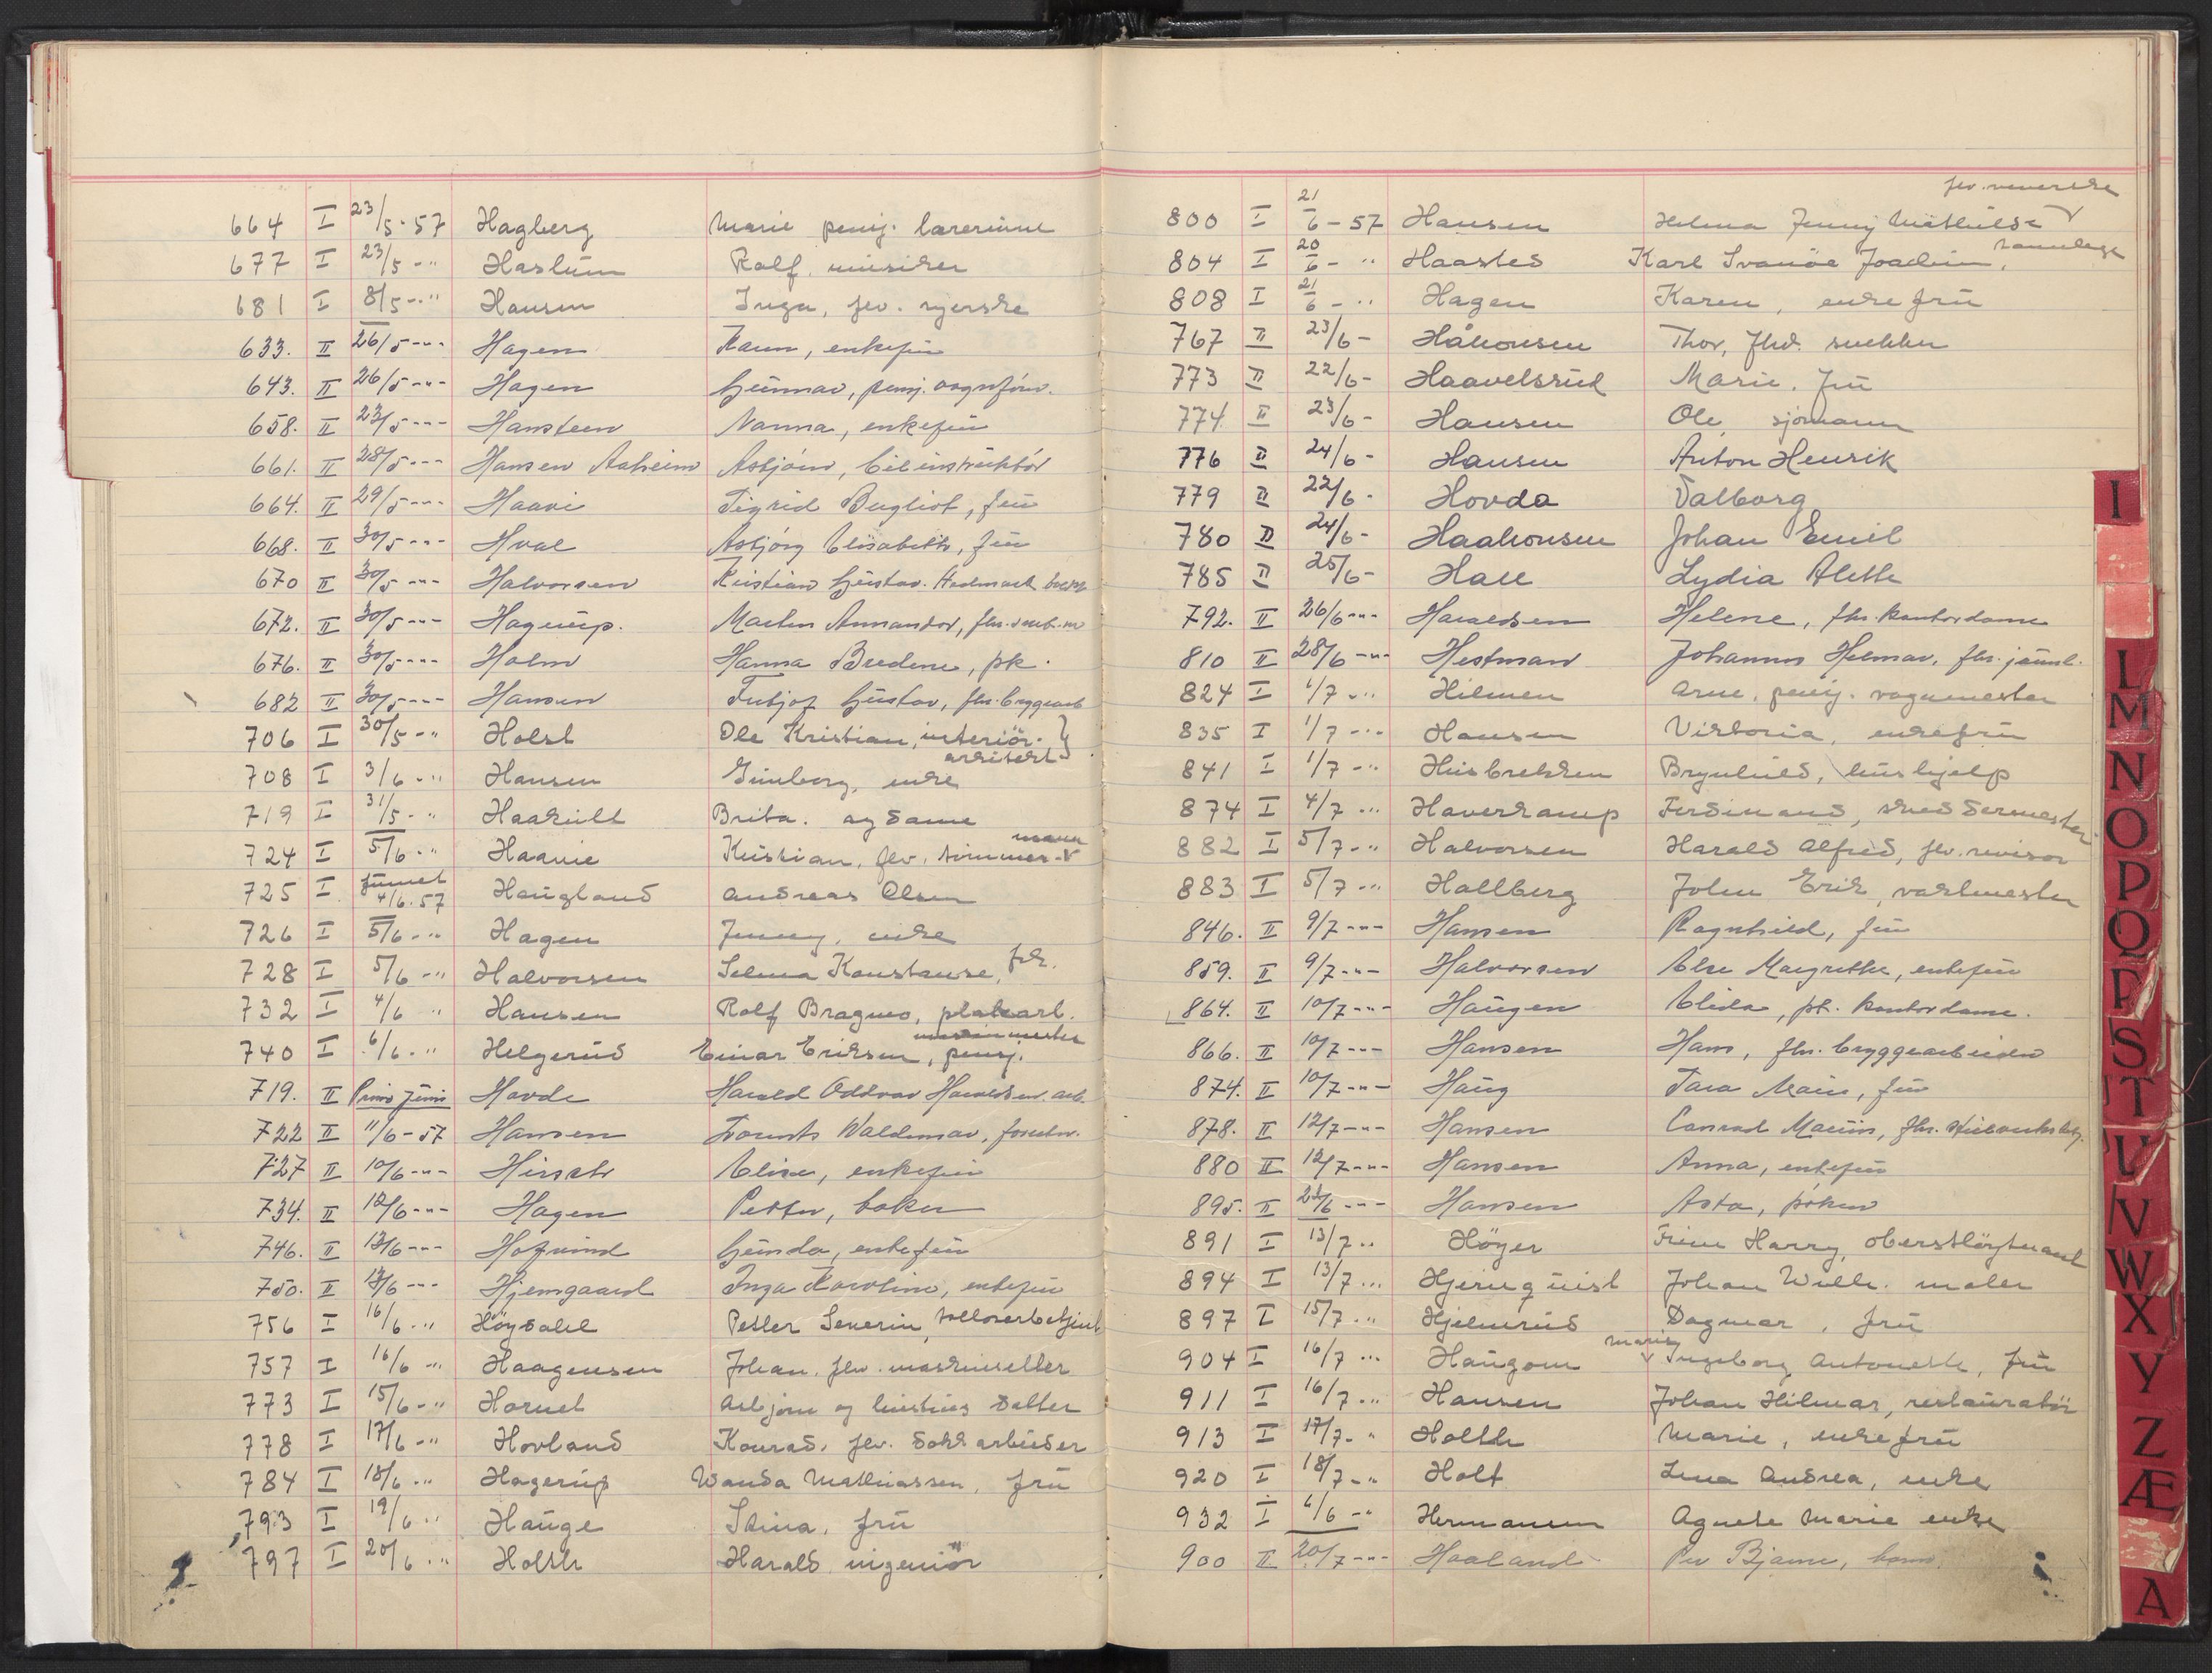 664 I 23/5-57 Hagberg Marie pensj. lærerinne
677 I 23/5 - " Haslum Rolf, musiker
681 I 8/5 - " Hansen Inga, fhv. syerske
633. II 26/5 - " - Hagen Karen, enkefru
643. II 26/5 - " - Hagen Gunnar, pensj. vognfører.
658. II 23/5 - " - Hansteen Nanna, enkefru
661. II 28/5 - " - Hansen Aaheim Asbjørn, bilinstruktør
664. II 29/5 - " - Haavi Sigrid Bergliot, fru
668. II 30/5 - " - Hval Asbjørg Elisabeth, fru
670 II 30/5 - " - Halvorsen Kristian Gustav. Hedmark
672. II 30/5 - " - Hagerup. Martin Armandor, fhv.
676. II 30/5 - " - Holm Hanna Bredine, pk.
682 II 30/5 - " - Hansen Fritjof Gustav, fhv. bryggearb
706 I 30/5 - " Holst Ole Kristian, interiør-
arkitekt
708 I 3/6 - " Hansen Gunborg, enke
719 I 31/5 - " Haakull Brita. og Sanne
mann
724 I 5/6 - " Haavie Kristian, fhv. tømmer-
725 I funnet 4/6-57 Haugland Andreas Olsen
726 I 5/6 - " Hagen Jenny, enke
728 I 5/6 - " Halvorsen Selma Konstanse, frk.
732 I 4/6 " Hansen Rolf Bragnes, platearb.
maskinmester
740 I 6/6 - " Helgerud Einar Eriksen, pensj.
719. II Primo juni Hovde Harald Oddvar Haraldsen. arb.
722 II 11/6-57 Hansen Lorents Waldemar, forretn.
727 II 10/6 - " - Hirsch Elise, enkefru
734. II 12/6 - " - Hagen Petter, baker
746. II 13/6 - " - Hofvind Gunda, enkefru
750. II 13/6 - " - Hjemgaard Inga Karoline, enkefru
756 I 16/6 - " Höydahl Petter Severin, tolloverbetjent
757 I 16/6 - " Haagensen Johan, fhv. maskinsetter
773 I 15/6 - " Hornet Asbjørn og hustrus datter
778 I 17/6 - " Hovland Konrad, fhv. dokkarbeider
784 I 18/6 - " Hagerup Wanda Mathiassen, fru
793 I 19/6 - " Hauge Stina, fru
797 I 20/6 - " Holth Harald ingeniör
fhv. veverske
800 I 21/6-57 Hansen Helma Jenny Mathilde
804 I 20/6 - " Haasted Karl Ivanöe Joachim, tannlege
808 I 21/6 - " Hagen Karen, enkefru
767 II 23/6 - Håkonsen Thor, fhv. snekker
773 II 22/6 - Haavelsrud Marie. fru
774 II 23/6 - Hansen Ole, sjømann
776 II 24/6 - Hansen Anton Henrik
779 II 22/6 - Hovda Valborg
780 II 24/6 - Haakonsen Johan Emil
785 II 25/6 - Hall Lydia Alette
792. II 26/6 - " - Haraldsen Helene, fhv. kontordame
810 II 28/6 - " - Hestman Johannes Helmar, fhv.
824 I 1/7 - " Hilmen Arne, pensj. vognmester
835 I 1/7 - " Hansen Viktoria, enkefru
841 I 1/7 - " Husbrekken Brynhild, hushjelp
874 I 4/7 - " Haverkamp Ferdinand, skreddermester
882 I 5/7 - " Halvorsen Harald Alfred, fhv. revisor
883 I 5/7 - " Hallberg John Erik, vaktmester
846. II 9/7 - " - Hansen Ragnhild, fru
859. II 9/7 - " - Halvorsen Else Margrethe, enkefru
864. II 10/7 - " - Haugen Elida, pk. kontordame.
866. II 10/7 - " - Hansen Hans, fhv. bryggearbeider
874. II 10/7 - " - Haug Tara Marie, fru
878. II 12/7 - " - Hansen Conrad Marius, fhv.
880 II 12/7 - " - Hansen Anna, enkefru
895. II 23/6 - " - Hansen Asta, frøken
891 I 13/7 - " Höyer Harry, oberstlöytnant
894 I 13/7 - " Hjernquist Johan Wilh. maler
897 I 15/7 - " Hjelmrud Dagmar, fru
Marie
904 I 16/7 - " Haugom Ingeborg Antonette, fru
911 I 16/7 - " Hansen Johan Hilmar, restauratör
913 I 17/7 - " Holth Marie, enkefru
920 I 18/7 - " Holt Lena Andrea, enke
932 I 6/6 - " Hermansen Agnete Marie enke
900 II 20/7 - " - Haaland Per Bjarne, barn.
I
L
M
N
O
P
Q
R
S
T
U
V
W
X
Y
Z
Æ
A